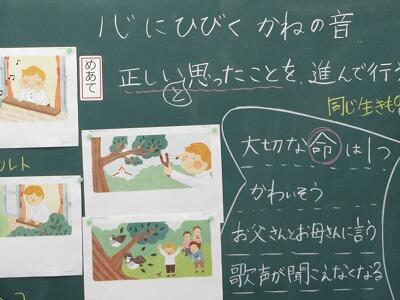 心にひびくかねの音
めあて
正しいと思ったことを、進んで行
同じ生きもの
大切な命は1つ
かわいそう
お父さんとお母さんに言う
歌声が聞こえなくなる
ルト